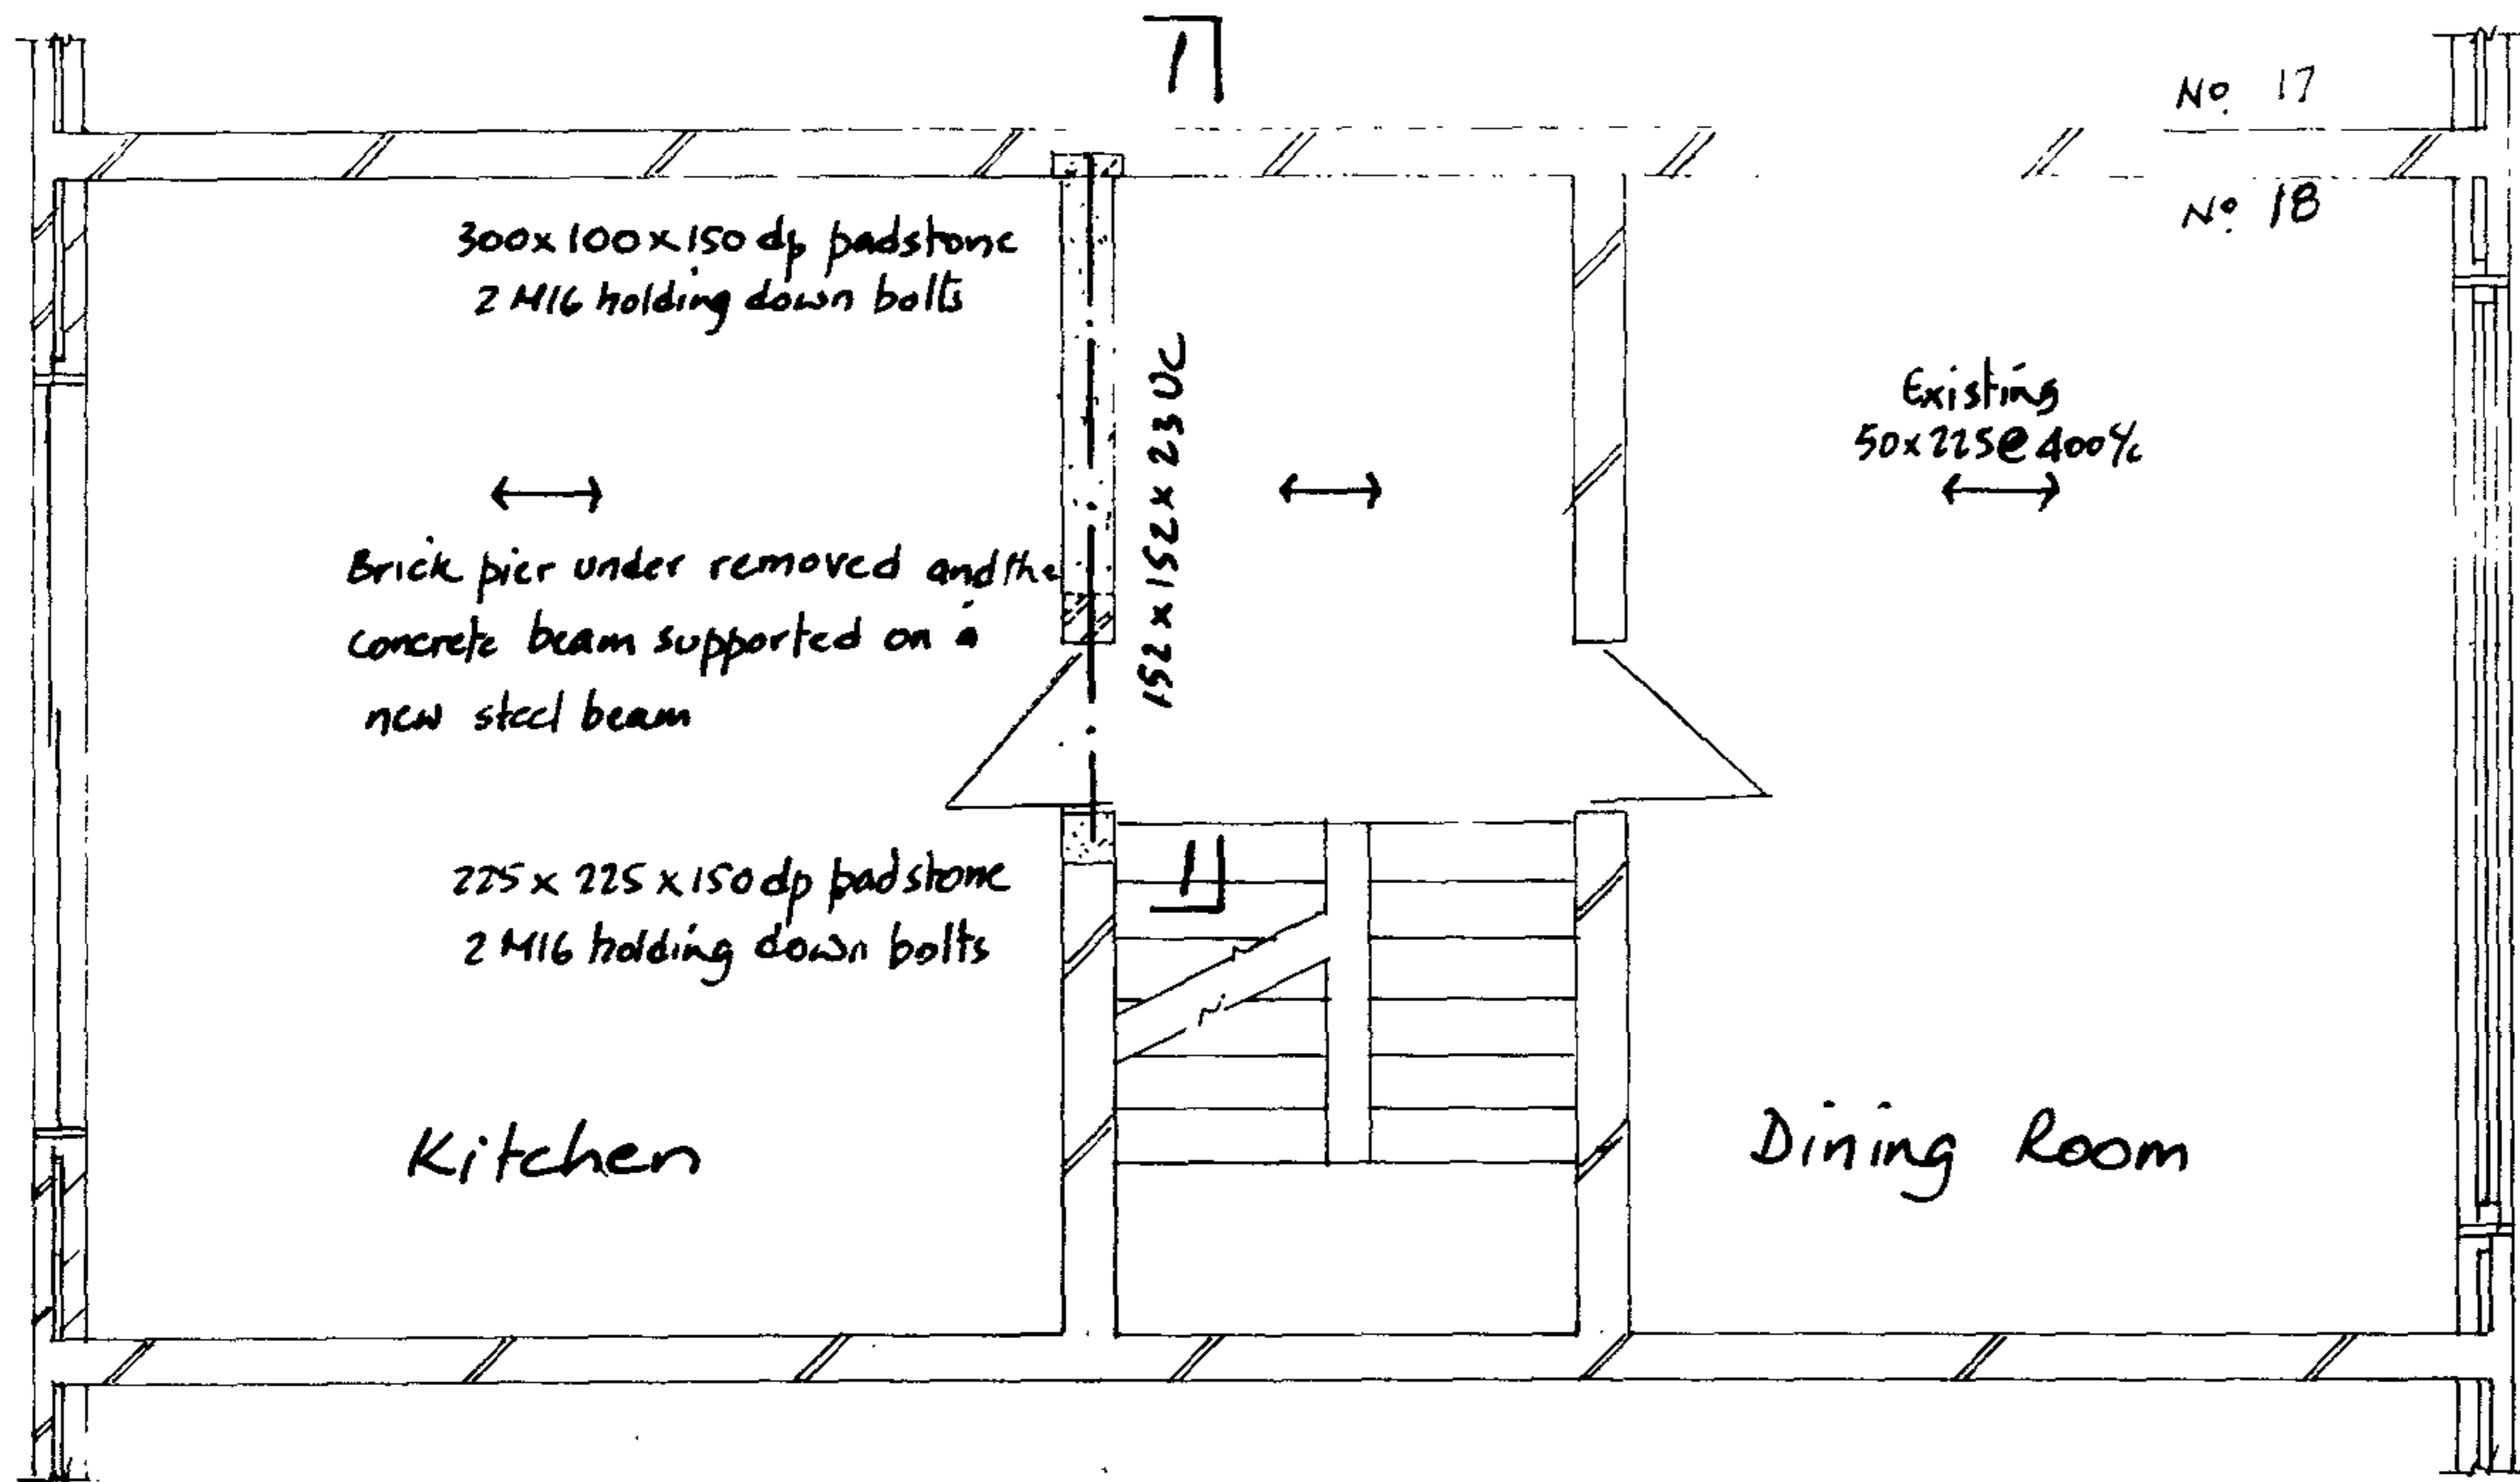 1
No 17
No 18
300x100x150 dp padstone
2 M16 holding down bolts
152 x 152 x 23 UC
Existing
50x225@400 c/c
Brick pier under removed and the
concrete beam supported on a
new steel beam
225 x 225 x 150 dp padstone
2 M16 holding down bolts
1
Kitchen
Dining Room